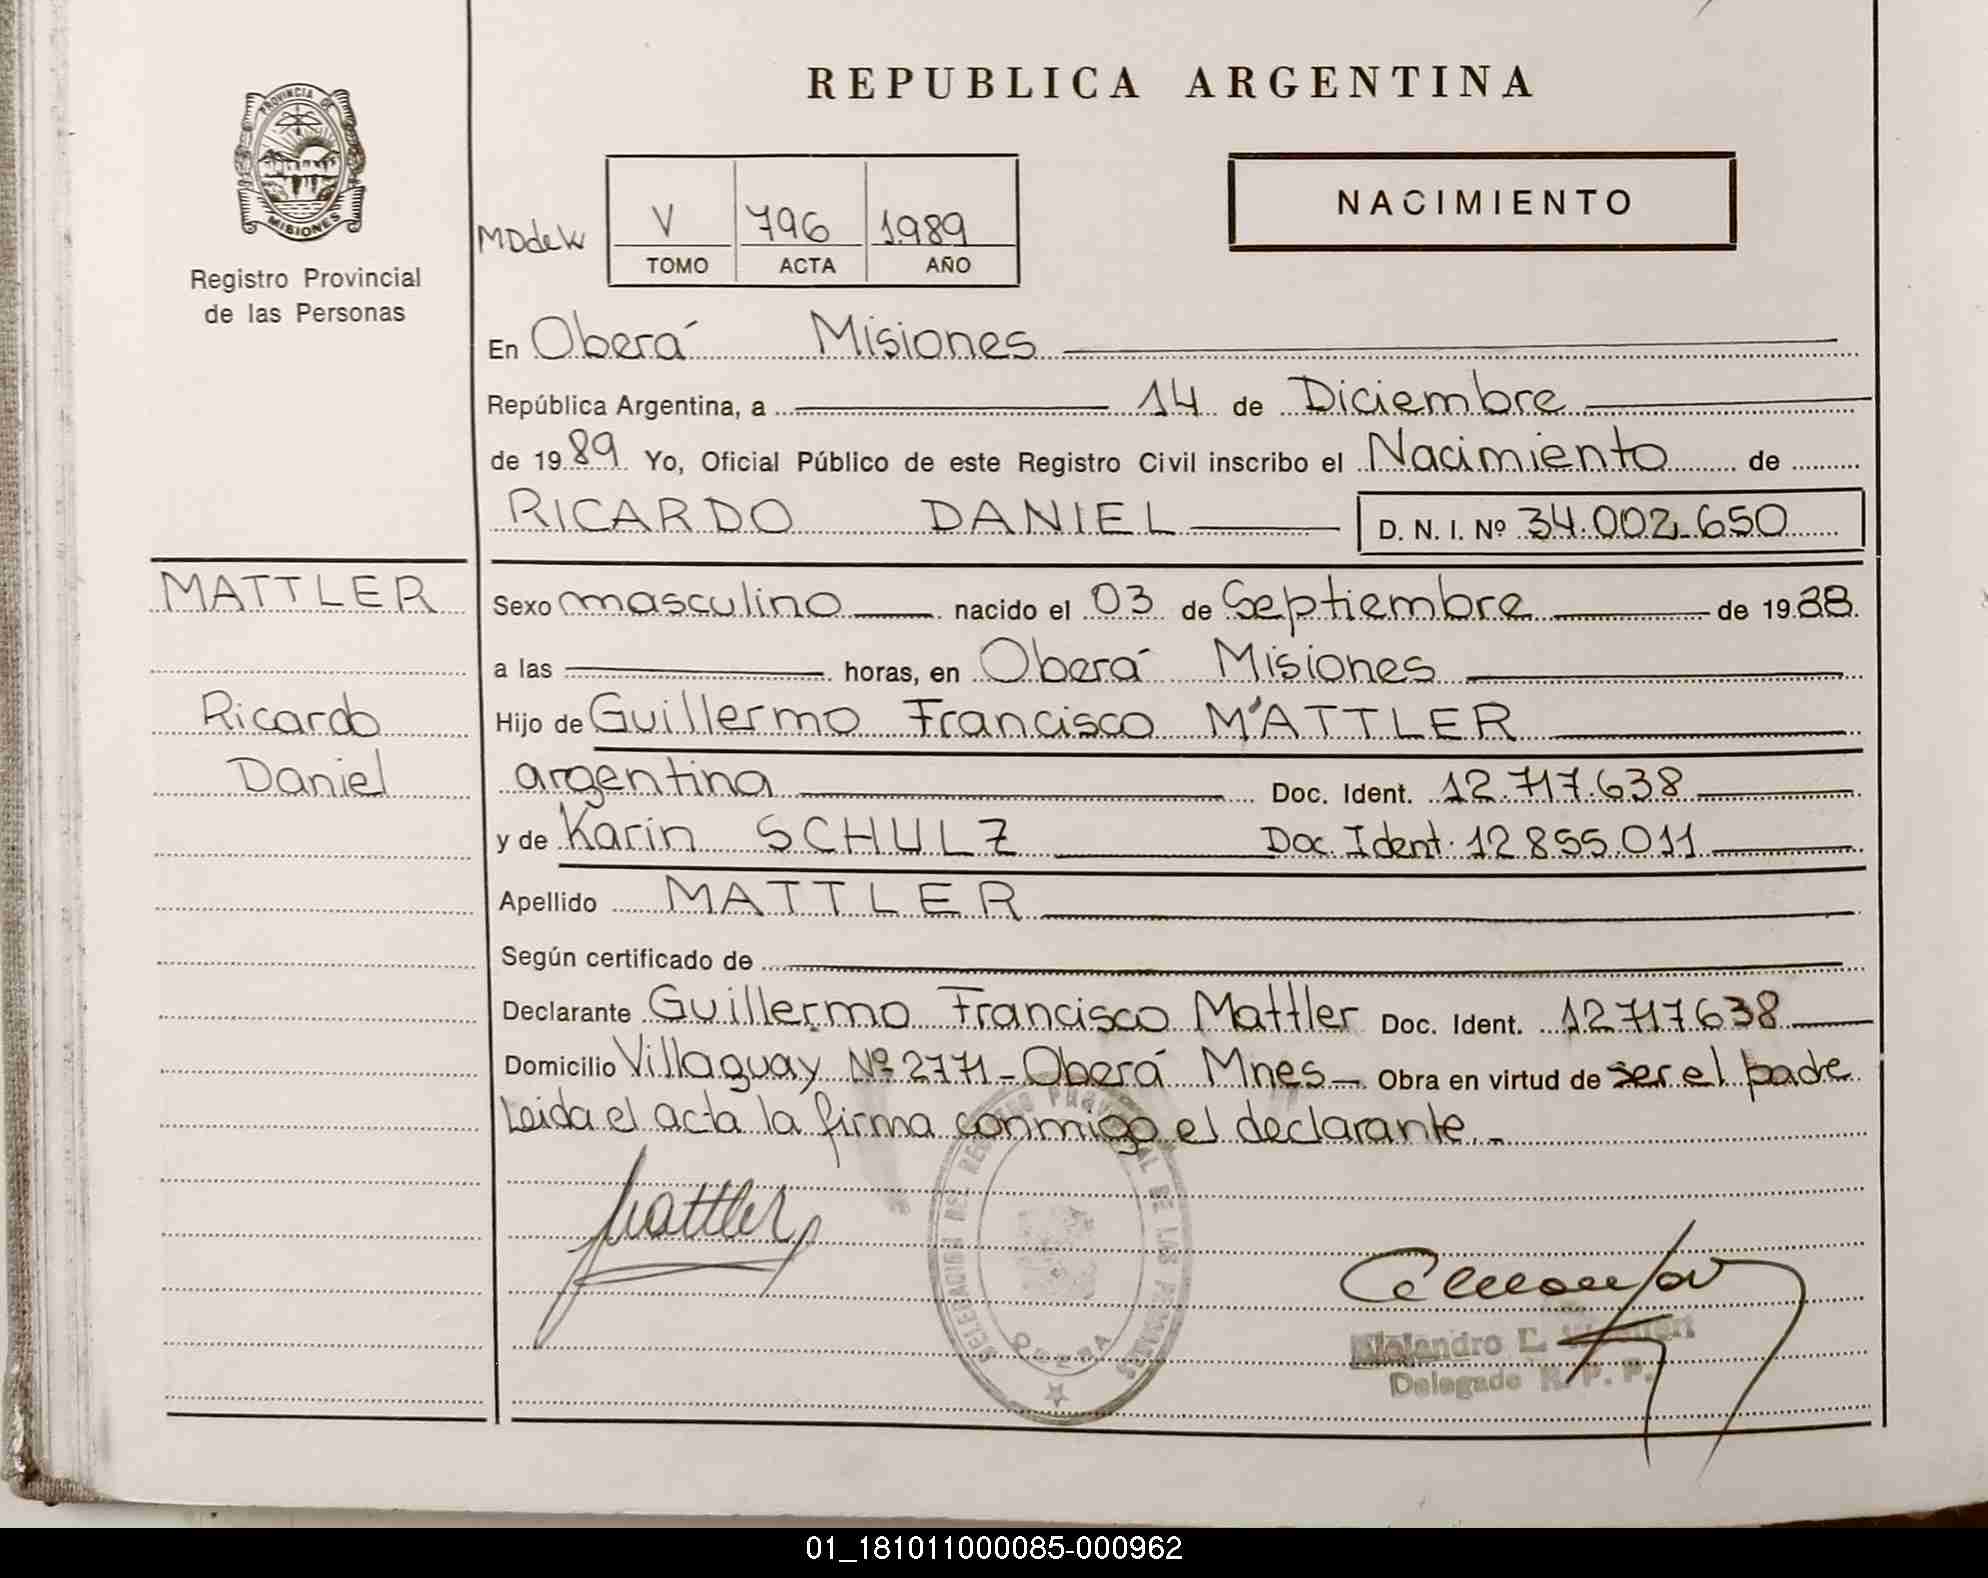 REPUBLICA ARGENTINA
PROVINCIA DE
MISIONES
Registro Provincial
de las Personas
NACIMIENTO
MDdeW
V 796 1989
TOMO ACTA AÑO
En Oberá Misiones
República Argentina, a 14 de Diciembre
de 1989 Yo, Oficial Público de este Registro Civil inscribo el Nacimiento de
RICARDO DANIEL D. N. I. Nº 34.002.650
MATTLER
Ricardo
Daniel
Sexo masculino nacido el 03 de Septiembre de 1988.
a las horas, en Oberá Misiones
Hijo de Guillermo Francisco MATTLER
argentina Doc. Ident. 12.717.638
y de Karin SCHULZ Doc. Ident. 12.855.011
Apellido MATTLER
Según certificado de
Declarante Guillermo Francisco Mattler Doc. Ident. 12717638
Domicilio Villaguay Nº 2771 - Oberá Mnes - Obra en virtud de ser el padre
Leida el acta la firma conmigo el declarante. -
Mattler
DELEGACION DEL REGISTRO PROVINCIAL DE LAS PERSONAS
OBERA
Alejandro E.
Delegado R. P. P.
01_181011000085-000962